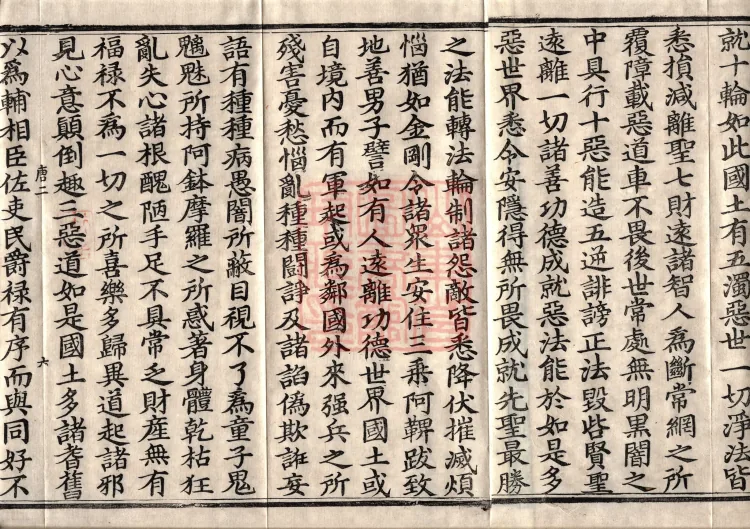 就十輪如此國土有五濁惡世一切淨法皆
悉損減離聖七財遠諸智人爲斷常網之所
覆障載惡道車不畏後世常處無明黑闇之
中具行十惡能造五逆誹謗正法毀呰賢聖
遠離一切諸善功德成就惡法能於如是多
惡世界悉令安隱得無所畏成就先聖最勝
之法能轉法輪制諸怨敵皆悉降伏摧滅煩
惱猶如金剛令諸衆生安住三乘阿鞞跋致
地善男子譬如有人遠離功德世界國土或
自境内而有軍起或爲鄰國外來强兵之所
殘害憂愁惱亂種種鬪諍及諸諂僞欺誑妄
語有種種病愚闇所蔽目視不了爲童子鬼
魑魅所持阿鉢摩羅之所惑著身體乾枯狂
亂失心諸根醜陋手足不具常乏財産無有
福禄不爲一切之所喜樂多歸異道起諸邪
見心意顛倒趣三惡道如是國土多諸耆舊
唐二
六
以爲輔相臣佐吏民爵禄有序而與同好不